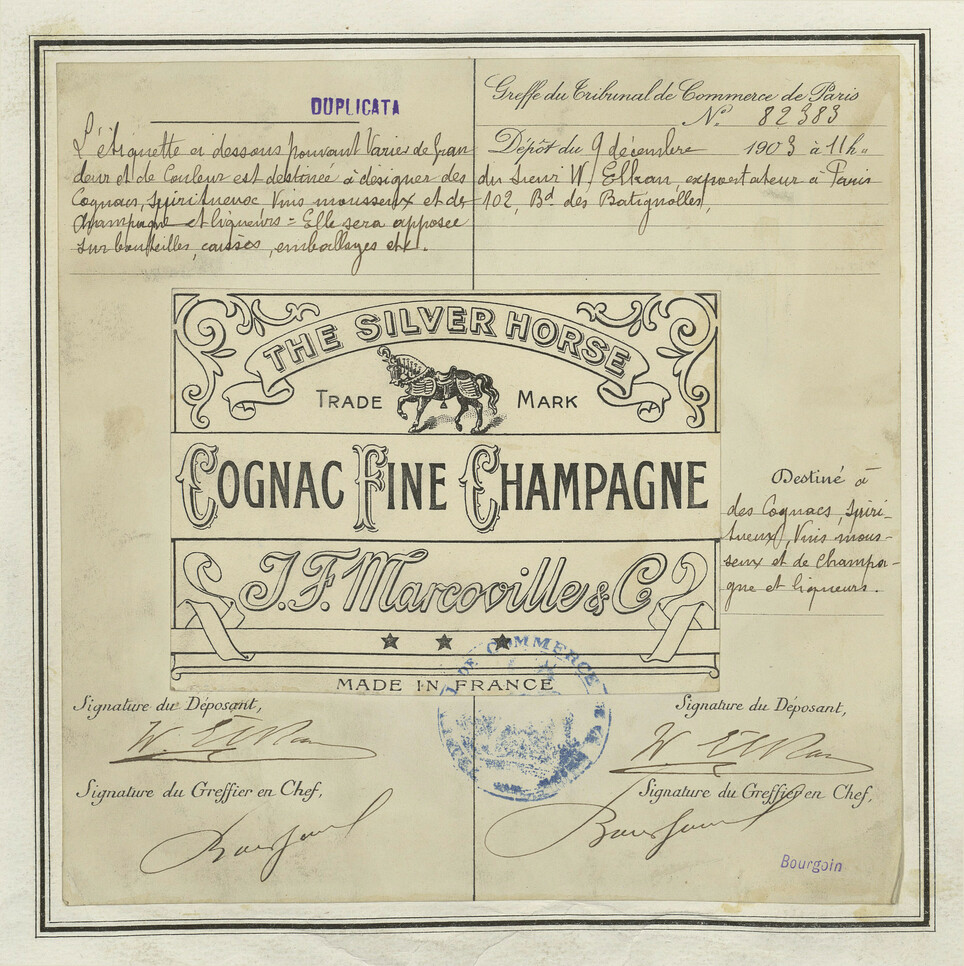 DUPLICATA
L'étiquette ci dessous pouvant Varier de Gran
deur et de Couleur est destinée à désigner des
Cognacs, Spiritueux Vins mousseux et de
Champagne et liqueurs = Elle sera apposée
sur bouteilles, caisses, emballages etc.
Greffe du Tribunal de Commerce de Paris
N° 82383
Dépôt du 9 décembre 1903 à 11h
du sieur W. Elkan exportateur à Paris
102, Bd des Batignolles,
THE SILVER HORSE
TRADE MARK
COGNAC FINE CHAMPAGNE
J.F. Marcoville & C
MADE IN FRANCE
Destiné à
des Cognacs, spiri-
tueux, Vins mous-
seux et de Champa-
gne et liqueurs.
DE COMMERCE DE
Signature du Déposant,
W. Elkan
Signature du Greffier en Chef,
Signature du Déposant,
W. Elkan
Signature du Greffier en Chef,
Bourgoin